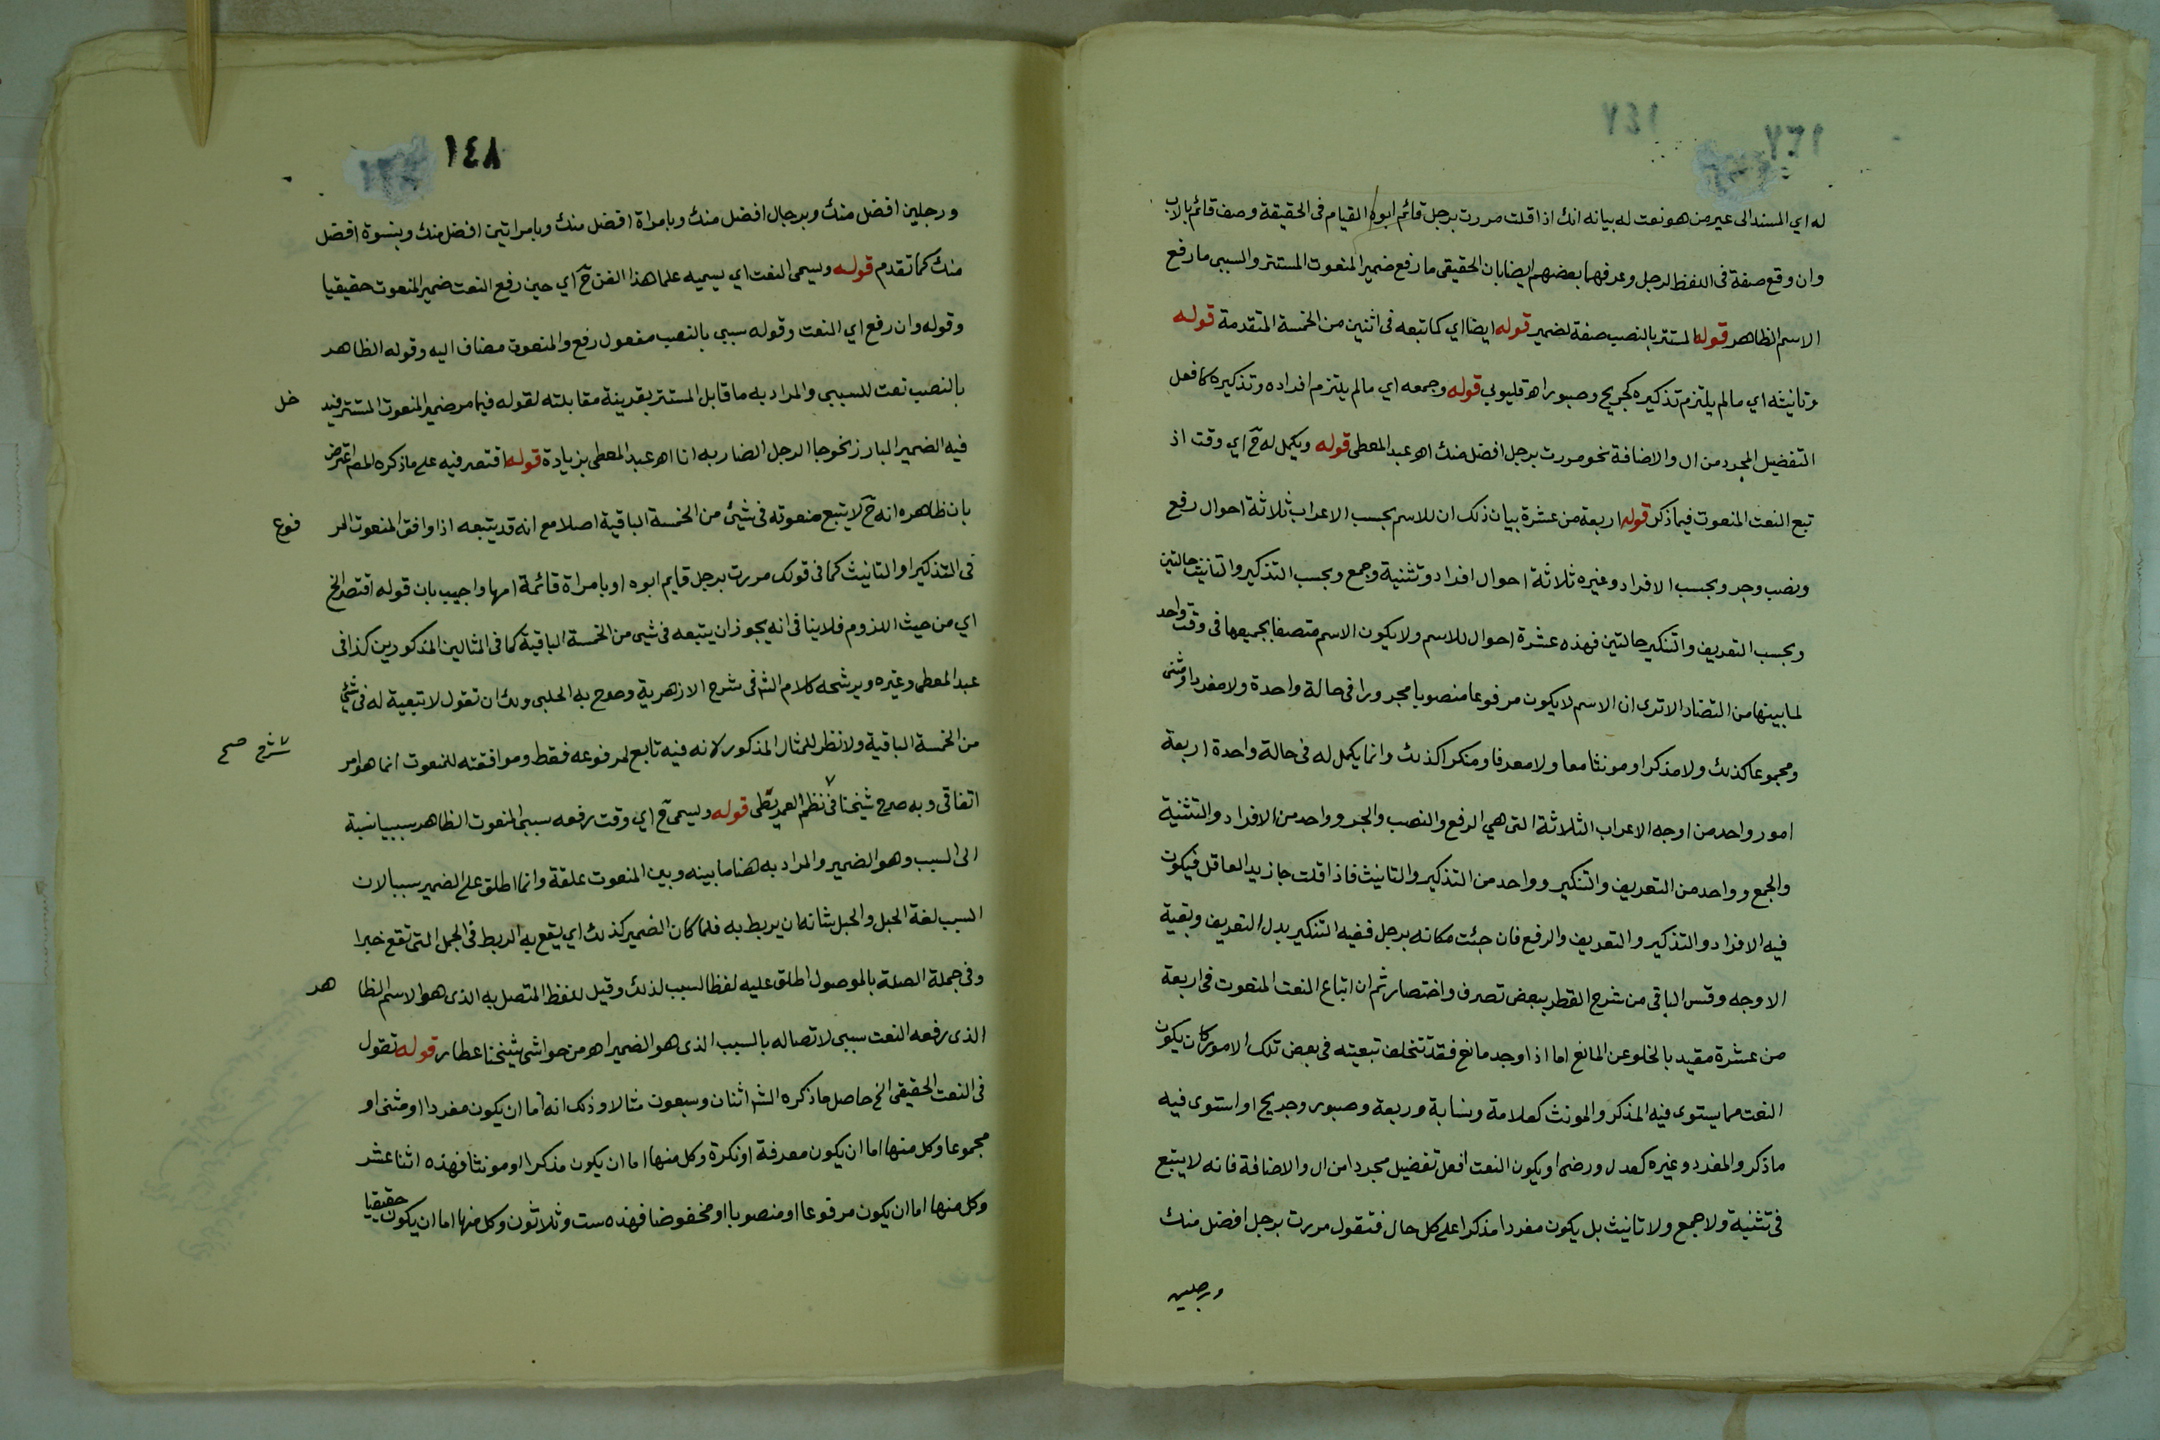 له اي المسند الى غير من هو نعت له بيانه انك اذا قلت مررت برجل قائم ابوه القيام في الحقيقة وصف قائم بالاب
وان وقع صفة في اللفظ لرجل وعرفهما بعضهم ايضا بان الحقيقي ما رفع ضمير المنعوت المستتر والسببي ما رفع
الاسم الظاهر قوله المستتر بالنصب صفة لضمير قوله ايضا اي كما تبعه في اثنين من الخمسة المتقدمة قوله
وتانيثه اي ما لم يلتزم تذكيره كجريح وصبور اهـ قليوبي قوله وجمعه اي ما لم يلتزم افراده وتذكيره كافعل
التفضيل المجرد من ال والاضافة نحو مررت برجل افضل منك اهـ عبد المعطى قوله ويكمل له ح اي وقت اذ
تبع النعت المنعوت فيما ذكر قوله اربعة من عشرة بيان ذلك ان للاسم بحسب الاعراب ثلاثة احوال رفع
ونصب وجر وبحسب الافراد وغيره ثلاثة احوال افراد وتثنية وجمع وبحسب التذكير والتانيث حالتين
وبحسب التعريف والتنكير حالتين فهذه عشرة احوال للاسم ولا يكون الاسم متصفا بجميعها في وقت واحد
لما بينها من التضاد الا ترى ان الاسم لا يكون مرفوعا منصوبا مجرورا في حالة واحدة ولا مفردا ومثنى
ومجموعا كذلك ولا مذكرا ومونثا معا ولا معرفا ومنكرا كذلك وانما يكمل له في حالة واحدة اربعة
امور واحد من اوجه الاعراب الثلاثة التي هي الرفع والنصب والجر وواحد من الافراد والتثنية
والجمع وواحد من التعريف والتنكير وواحد من التذكير والتانيث فاذا قلت جا زيد العاقل فيكون
فيه الافراد والتذكير والتعريف والرفع فان جئت مكانه برجل ففيه التنكير بدل التعريف وبقية
الاوجه وقس الباقي من شرح القطر ببعض تصرف واختصار ثم ان اتباع النعت المنعوت في اربعة
من عشرة مقيد بالخلو عن المانع اما اذا وجد مانع فقد تتخلف تبعيته في بعض تلك الامور كان يكون
النعت مما يستوى فيه المذكر والمونث كعلامة ونسابة وربعة وصبور وجريح او استوى فيه
ما ذكر والمفرد وغيره كعدل ورضى او يكون النعت افعل تفضيل مجردا من ال والاضافة فانه لا يتبع
في تثنية ولا جمع ولا تانيث بل يكون مفردا مذكرا على كل حال فتقول مررت برجل افضل منك
ورجلين
١٤٨
ورجلين افضل منك وبرجال افضل منك وبامراة افضل منك وبامراتين افضل منك وبنسوة افضل
منك كما تقدم قوله ويسمى النعت اي يسميه علما هذا الفن ح اي حين رفع النعت ضمير المنعوت حقيقيا
وقوله وان رفع اي النعت وقوله سببي بالنصب مفعول رفع والمنعوت مضاف اليه وقوله الظاهر
بالنصب نعت للسببي والمراد به ما قابل المستتر بقرينة مقابلته لقوله فيما مر ضمير المنعوت المستتر فيد خل
فيه الضمير البارز نحو جا الرجل الضاربه انا اهـ عبد المعطى بزيادة قوله اقتصر فيه على ما ذكره المص اعترض
بان ظاهره انه ح لا يتبع منعوته في شيئ من الخمسة الباقية اصلا مع انه قد يتبعه اذا وافق المنعوت المر فوع
في التذكير او التانيث كما في قولك مررت برجل قايم ابوه او بامراة قائمة امها واجيب بان قوله اقتصر الخ
اي من حيث اللزوم فلا ينافى انه يجوز ان يتبعه في شيى من الخمسة الباقية كما في المثالين المذكورين كذا في
عبد المعطى وغيره ويرشحه كلام الش في شرح الازهرية وصرح به الحلبي ولك ان تقول لا تبعية له في شيئ
من الخمسة الباقية ولا نظر للمثال المذكور لانه فيه تابع لمرفوعه فقط وموافقته للمنعوت انما هو امر
اتفاقي وبه صرح شيخنا في نظم العمريطى قوله ويسمى ح اي وقت رفعه سببي المنعوت الظاهر سببيا نسبة
شرح صح
الى السبب وهو الضمير والمراد به هنا ما بينه وبين المنعوت علقة وانما اطلق على الضمير سببا لان
السبب لغة الحبل والحبل شانه ان يربط به فلما كان الضمير كذلك اي يقع به الربط في الجمل التي تقع خبرا
وفي جملة الصلة بالموصول اطلق عليه لفظ السبب لذلك وقيل للفظ المتصل به الذى هو الاسم الظا هر
الذى رفعه النعت سببي لاتصاله بالسبب الذى هو الضمير اهـ من حواشي شيخنا عطار قوله تقول
في النعت الحقيقي الخ حاصل ما ذكره الش اثنان وسبعون مثالا وذلك انه اما ان يكون مفردا او مثنى او
مجموعا وكل منها اما ان يكون معرفة او نكرة وكل منها اما ان يكون مذكرا او مونثا فهذه اثنا عشر
وكل منها اما ان يكون مرفوعا او منصوبا او مخفوضا فهذه ست وثلاثون وكل منها اما ان يكون حقيقيا